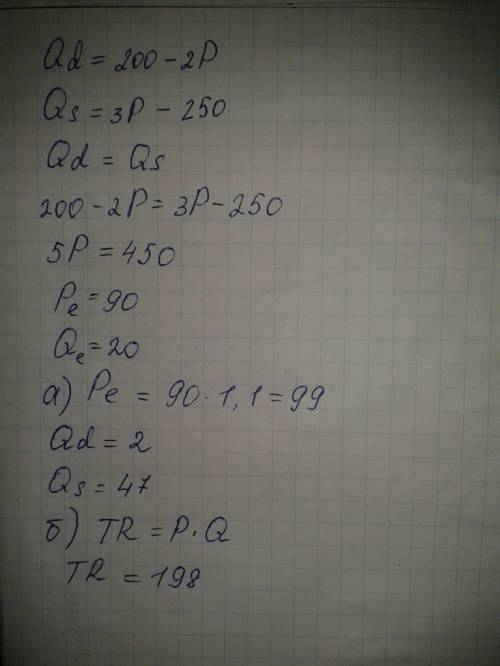 Qd = 200 - 2P
Qs = 3P - 250
Qd = Qs
200 - 2P = 3P - 250
5P = 450
Pe = 90
Qe = 20
а) Pe = 90 · 1,1 = 99
Qd = 2
Qs = 47
б) TR = P · Q
TR = 198